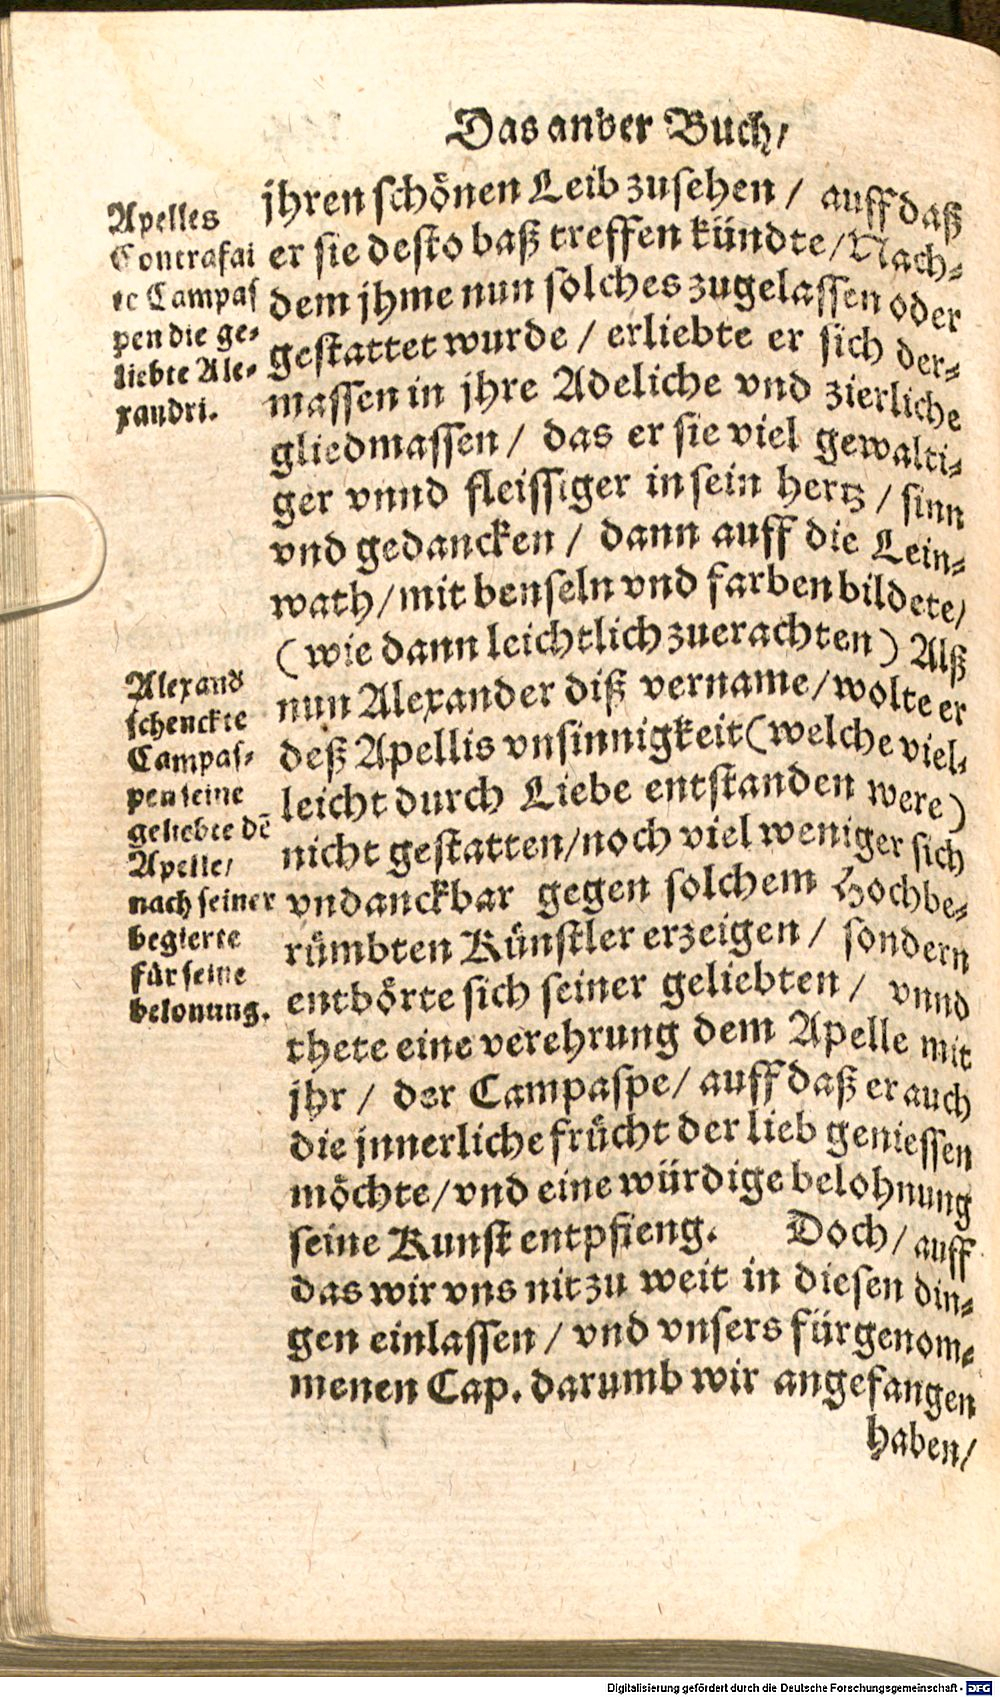 Das ander Buch/
Apelles
Contrafai
te Campas
pen die ge-
liebte Ale-
xandri.
jhren schönen Leib zusehen / auff daß
er sie desto baß treffen kündte/Nach-
dem jhme nun solches zugelassen oder
gestattet wurde / erliebte er sich der-
massen in jhre Adeliche vnd zierliche
gliedmassen / das er sie viel gewalti-
ger vnnd fleissiger in sein hertz / sinn
vnd gedancken / dann auff die Lein-
wath/mit benseln vnd farben bildete/
(wie dann leichtlich zuerachten) Alß
nun Alexander diß vername/wolte er
deß Apellis vnsinnigkeit(welche viel-
leicht durch Liebe entstanden were)
nicht gestatten/noch viel weniger sich
vndanckbar gegen solchem Hochbe-
rümbten Künstler erzeigen / sondern
entbörte sich seiner geliebten / vnnd
thete eine verehrung dem Apelle mit
jhr / der Campaspe/ auff daß er auch
die jnnerliche frücht der lieb geniessen
möchte/vnd eine würdige belohnung
seine Kunst entpfieng. Doch/ auff
das wir vns nit zu weit in diesen din-
gen einlassen / vnd vnsers fürgenom-
menen Cap. darumb wir angefangen
haben/
Alexand
schenckte
Campas-
pen seine
geliebte dē
Apelle/
nach seiner
begierte
für seine
belonung.
Digitalisierung gefördert durch die Deutsche Forschungsgemeinschaft - DFG